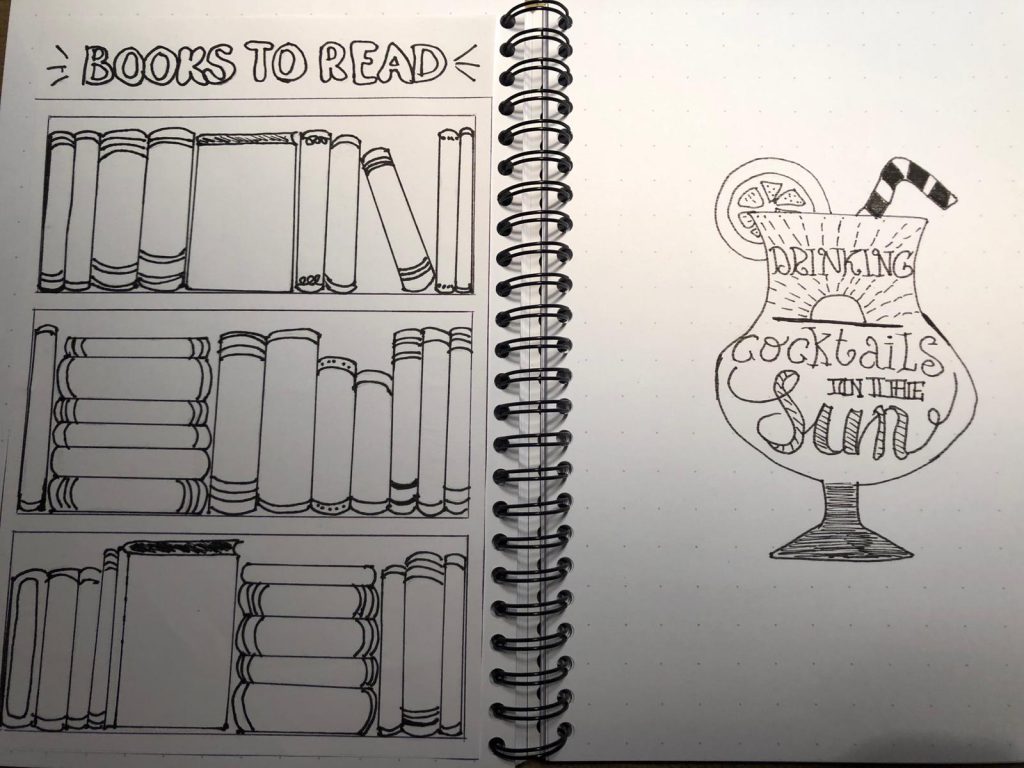 BOOKS TO READ
DRINKING
COCKTAILS
IN THE
Sun